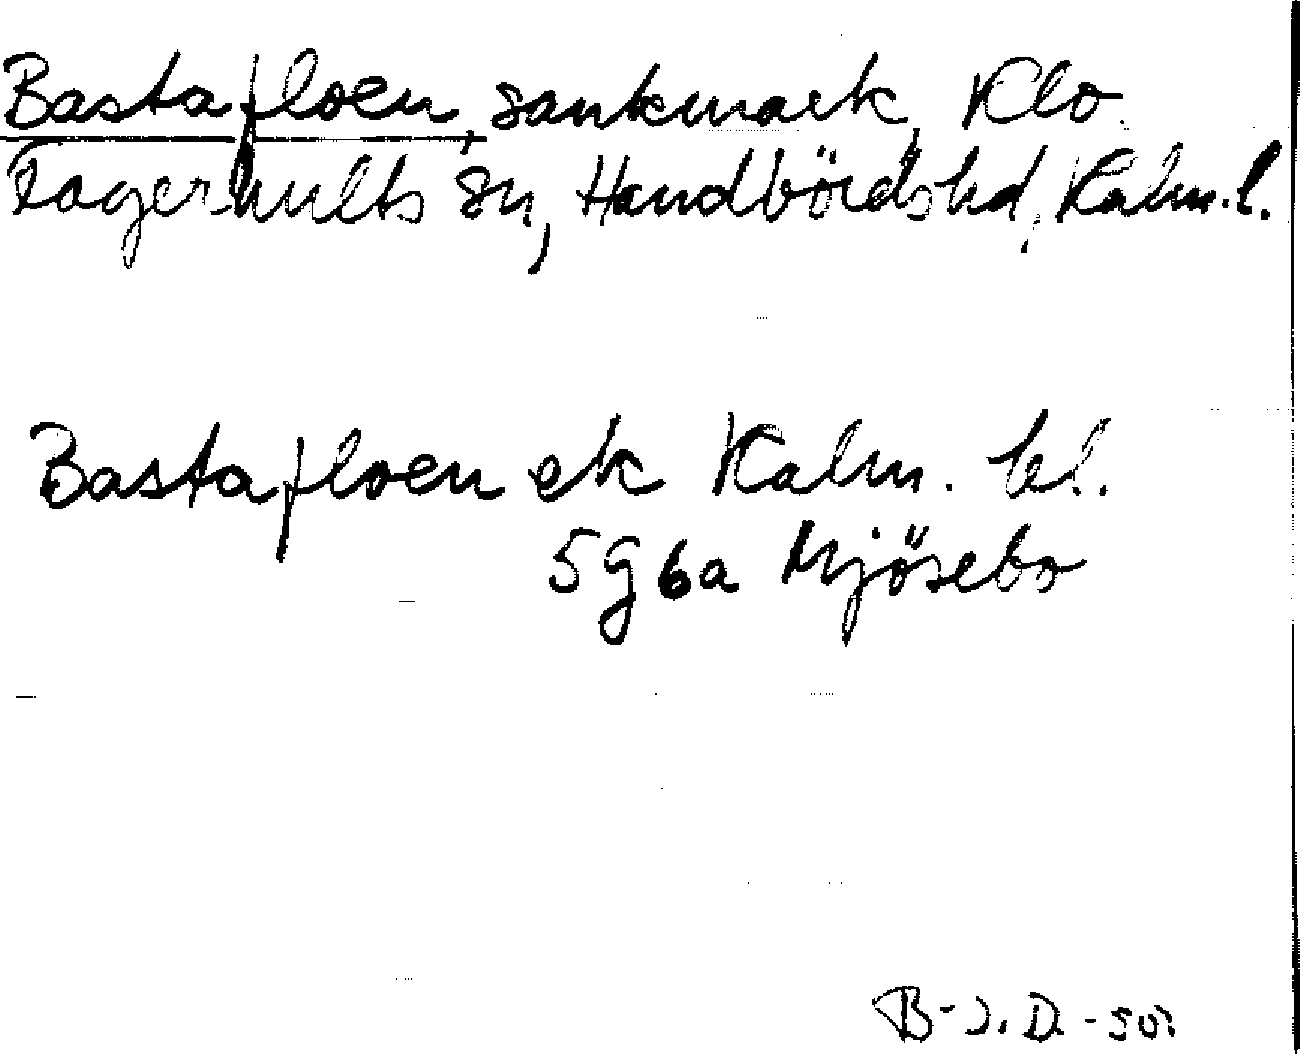 Bastafloen, sankmark, Klo.
Fagerhults sn, Handbörds hd, Kalm. l.
Bastafloen ek Kalm. bl.
5 G 6a Mjösebo
B-J. D. -50.